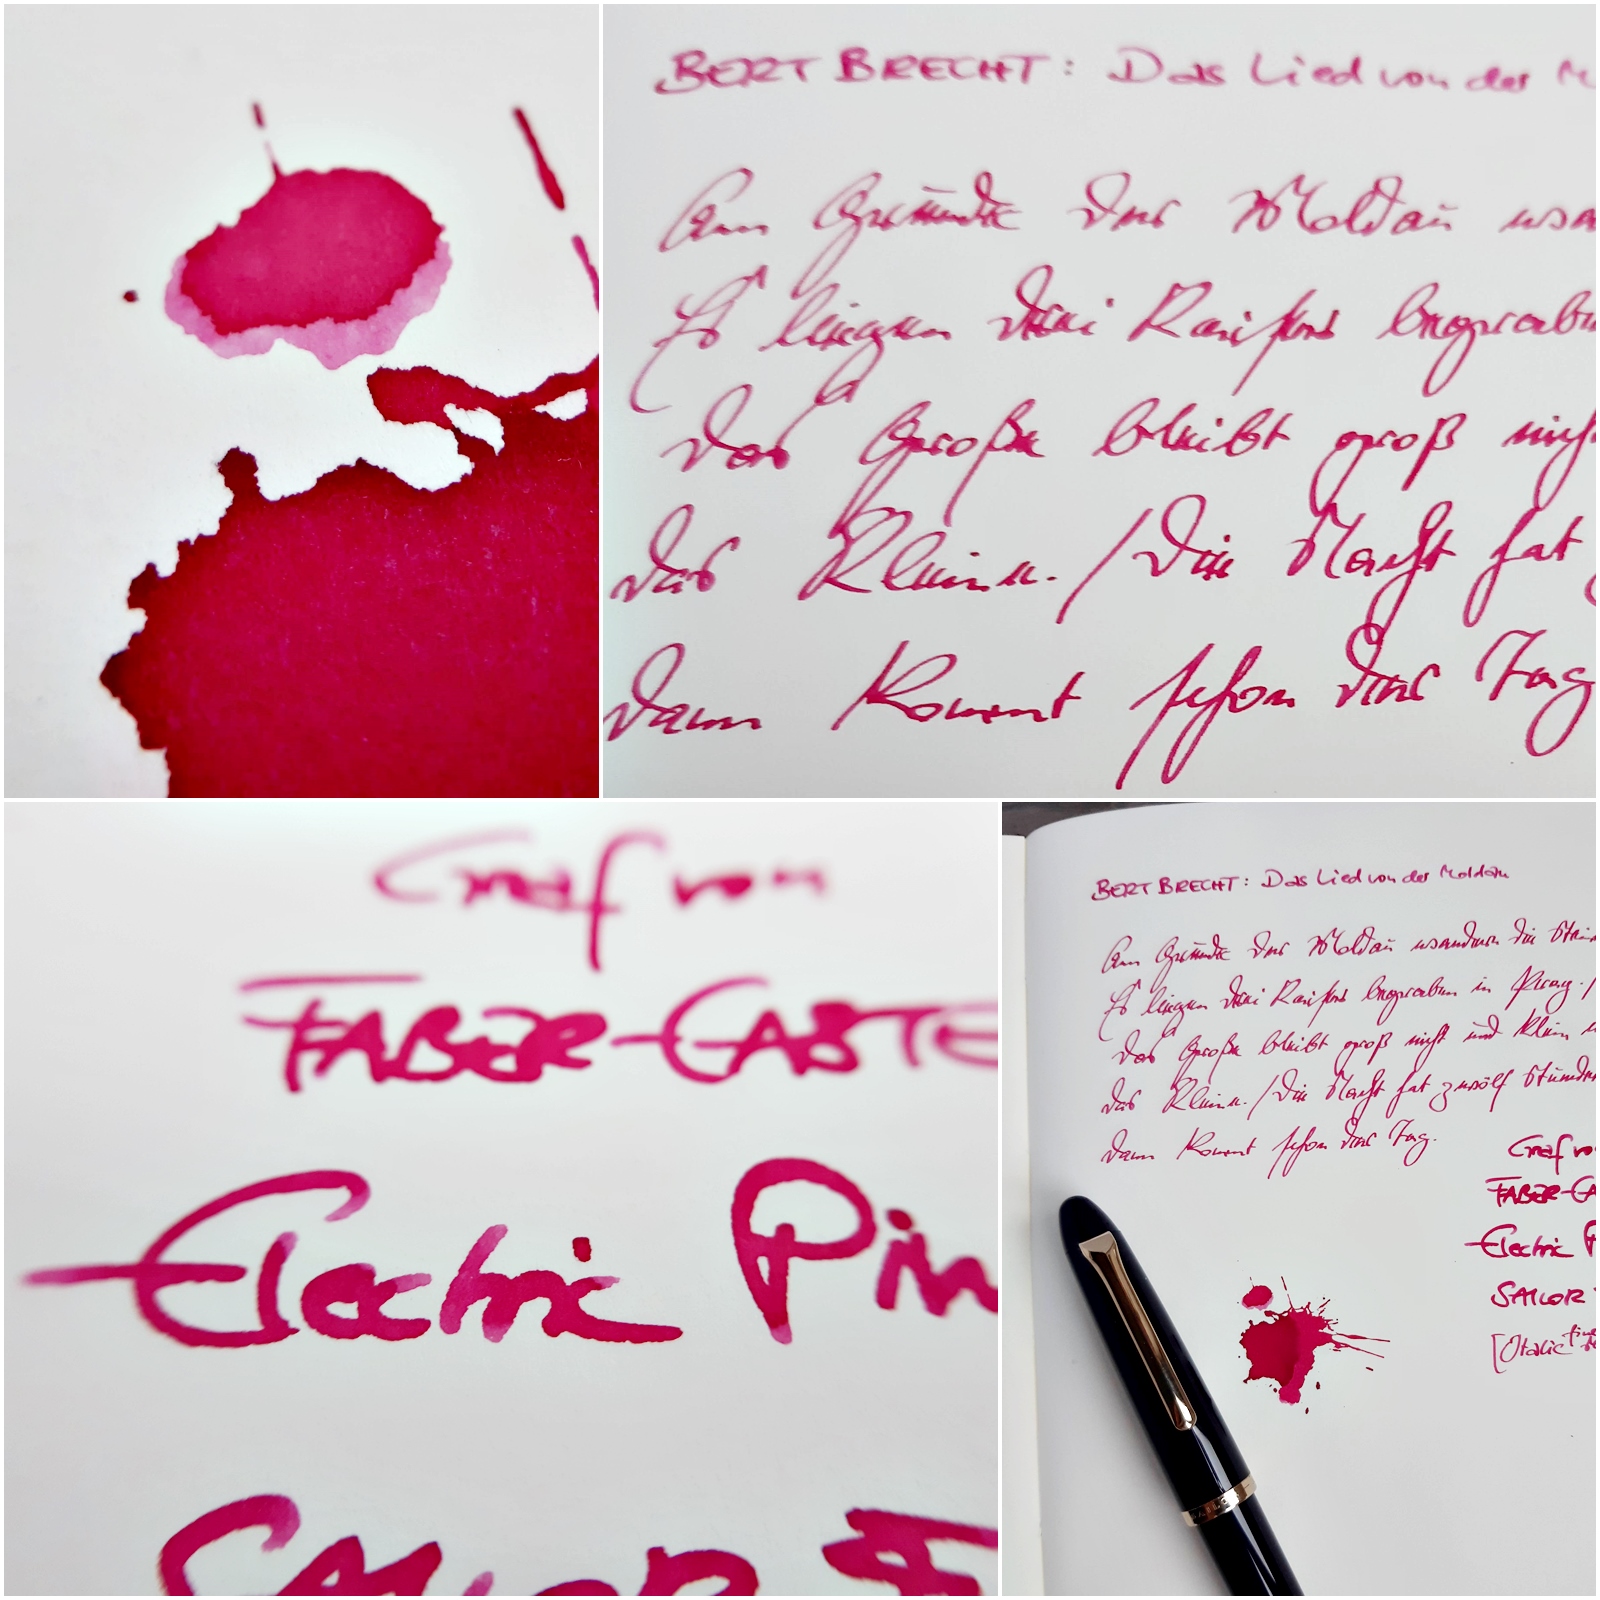 BERT BRECHT: Das Lied von der M
Am Grunde der Moldau
Es liegen drei Kaiser begraben
Das Große bleibt groß nicht
das Kleine. / Die Nacht hat
dann kommt schon der Tag
Graf von
FABER-CASTE
Electric Pin
SAILOR
BERT BRECHT: Das Lied von der Moldau
Am Grunde der Moldau wandern die Stein
Es liegen drei Kaiser begraben in Prag. /
Das Große bleibt groß nicht und klein
das Kleine. / Die Nacht hat zwölf Stunden
dann kommt schon der Tag.
Graf vo
FABER-CA
Electric P
SAILOR
[Italic fine
SAILOR